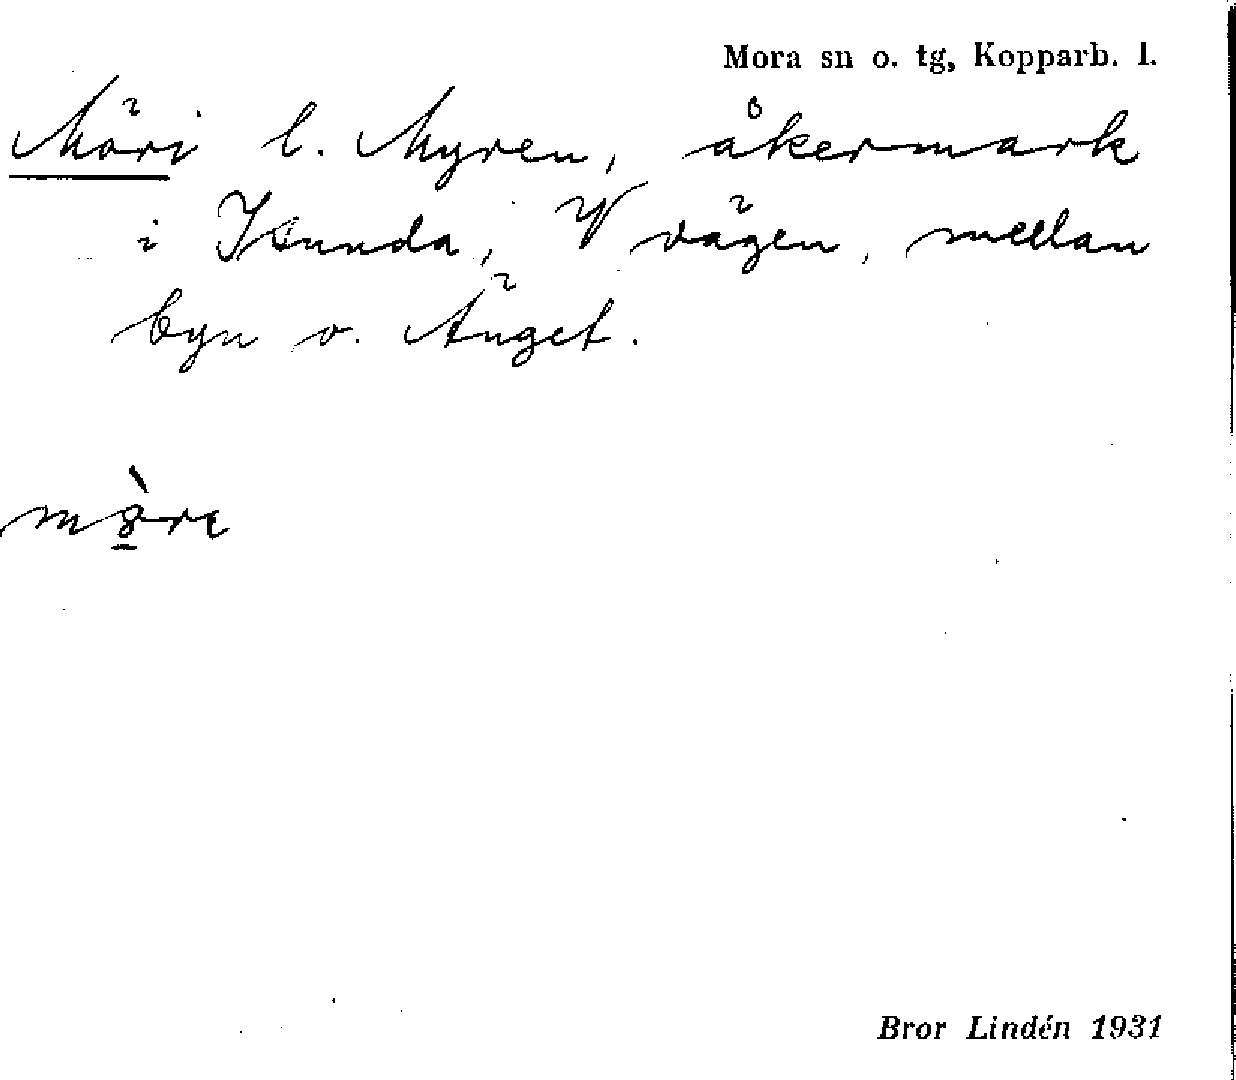 Mora sn o. tg, Kopparb. l.
Möri l. Myren, åkermark
i Isunda, v/ vägen, mellan
byn o. Änget.
Bror Lindén 1931